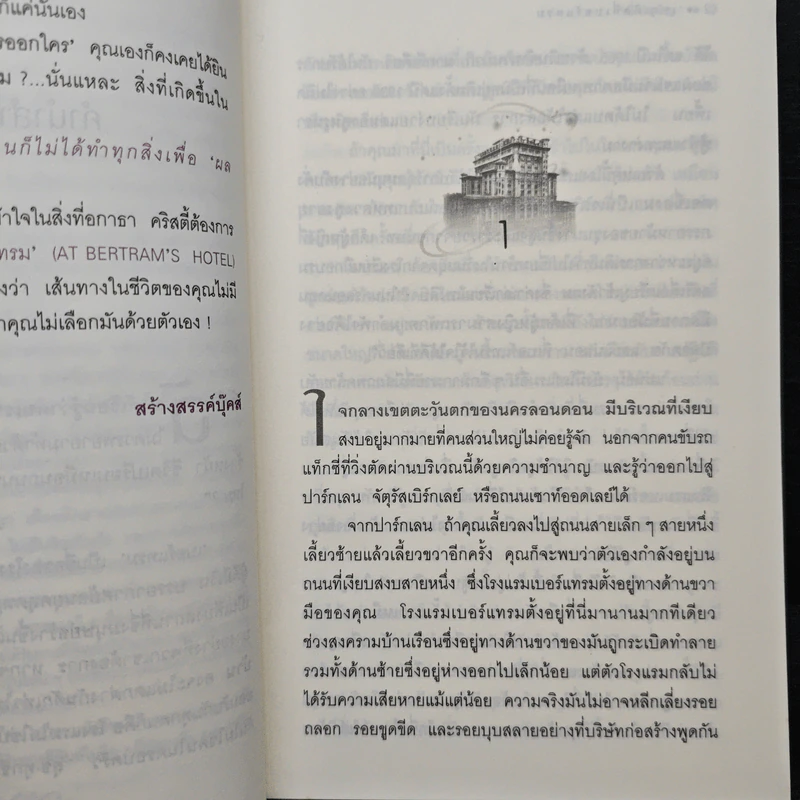 ก็แค่นั้นเอง
คุณเองก็คงเคยได้ยิน
?...นั่นแหละ สิ่งที่เกิดขึ้นใน
นก็ไม่ได้ทำทุกสิ่งเพื่อ 'ผล
ในสิ่งที่อกาธา คริสตี้ต้องการ
(AT BERTRAM'S HOTEL)
เส้นทางในชีวิตของคุณไม่มี
คุณไม่เลือกมันด้วยตัวเอง !
สร้างสรรค์บุ๊คส์
1
ใจกลางเขตตะวันตกของนครลอนดอน มีบริเวณที่เงียบ
สงบอยู่มากมายที่คนส่วนใหญ่ไม่ค่อยรู้จัก นอกจากคนขับรถ
แท็กซี่ที่วิ่งตัดผ่านบริเวณนี้ด้วยความชำนาญ และรู้ว่าออกไปสู่
ปาร์กเลน จัตุรัสเบิร์กเลย์ หรือถนนเซาท์ออดเลย์ได้
จากปาร์กเลน ถ้าคุณเลี้ยวลงไปสู่ถนนสายเล็ก ๆ สายหนึ่ง
เลี้ยวซ้ายแล้วเลี้ยวขวาอีกครั้ง คุณก็จะพบว่าตัวเองกำลังอยู่บน
ถนนที่เงียบสงบสายหนึ่ง ซึ่งโรงแรมเบอร์แทรมตั้งอยู่ทางด้านขวา
มือของคุณ โรงแรมเบอร์แทรมตั้งอยู่ที่นี่มานานมากทีเดียว
ช่วงสงครามบ้านเรือนซึ่งอยู่ทางด้านขวาของมันถูกระเบิดทำลาย
รวมทั้งด้านซ้ายซึ่งอยู่ห่างออกไปเล็กน้อย แต่ตัวโรงแรมกลับไม่
ได้รับความเสียหายแม้แต่น้อย ความจริงมันไม่อาจหลีกเลี่ยงรอย
ถลอก รอยขูดขีด และรอยบุบสลายอย่างที่บริษัทก่อสร้างพูดกัน